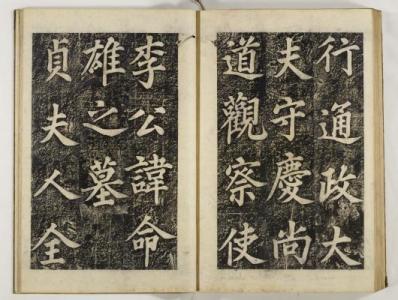 行通政大
夫守慶尚
道觀察使
李公諱命
雄之墓
貞夫人全